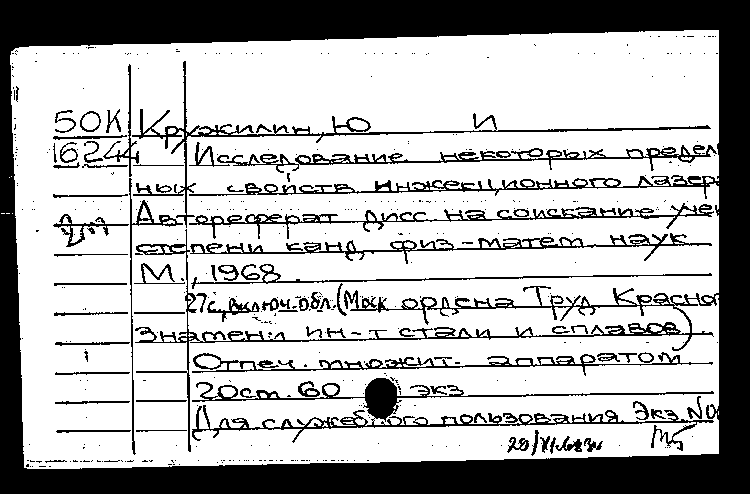 50К Кружилин, Ю И
16244 Исследование некоторых предел
ных свойств инжекционного лазера
Автореферат дисс. на соискание учен
степени канд. физ-матем. наук
М., 1968
27с, включ. обл. (Моск ордена Труд Красно
Знамени ин-т стали и сплавов).
Отпеч. множит. аппаратом
20см. 60 экз
Для служебного пользования. Экз. №00